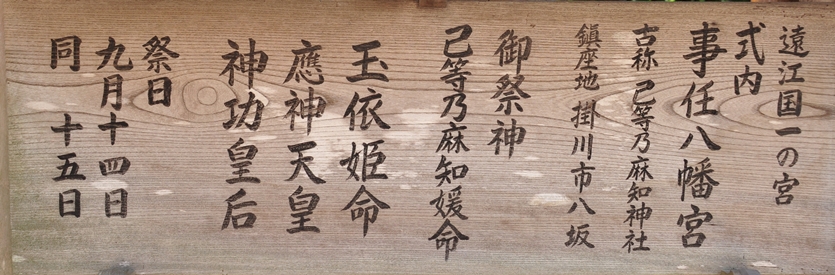 遠江国一の宮
式内
事任八幡宮
古称 己等乃麻知神社
鎮座地 掛川市八坂
御祭神
己等乃麻知媛命
玉依姫命
應神天皇
神功皇后
祭日
九月十四日
同 十五日